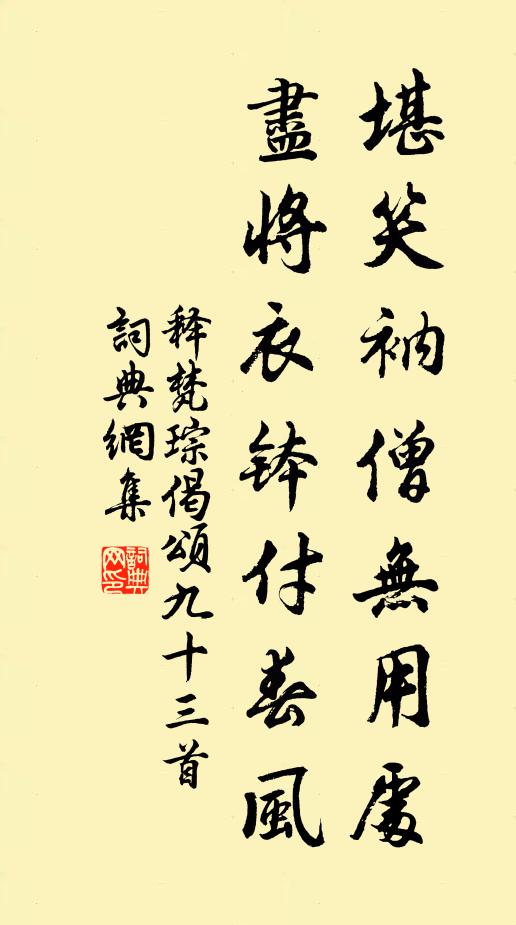 堪笑衲僧無用處
盡將衣鉢付春風
释梵琮偈頌九十三首
詞典網集
詞典网印